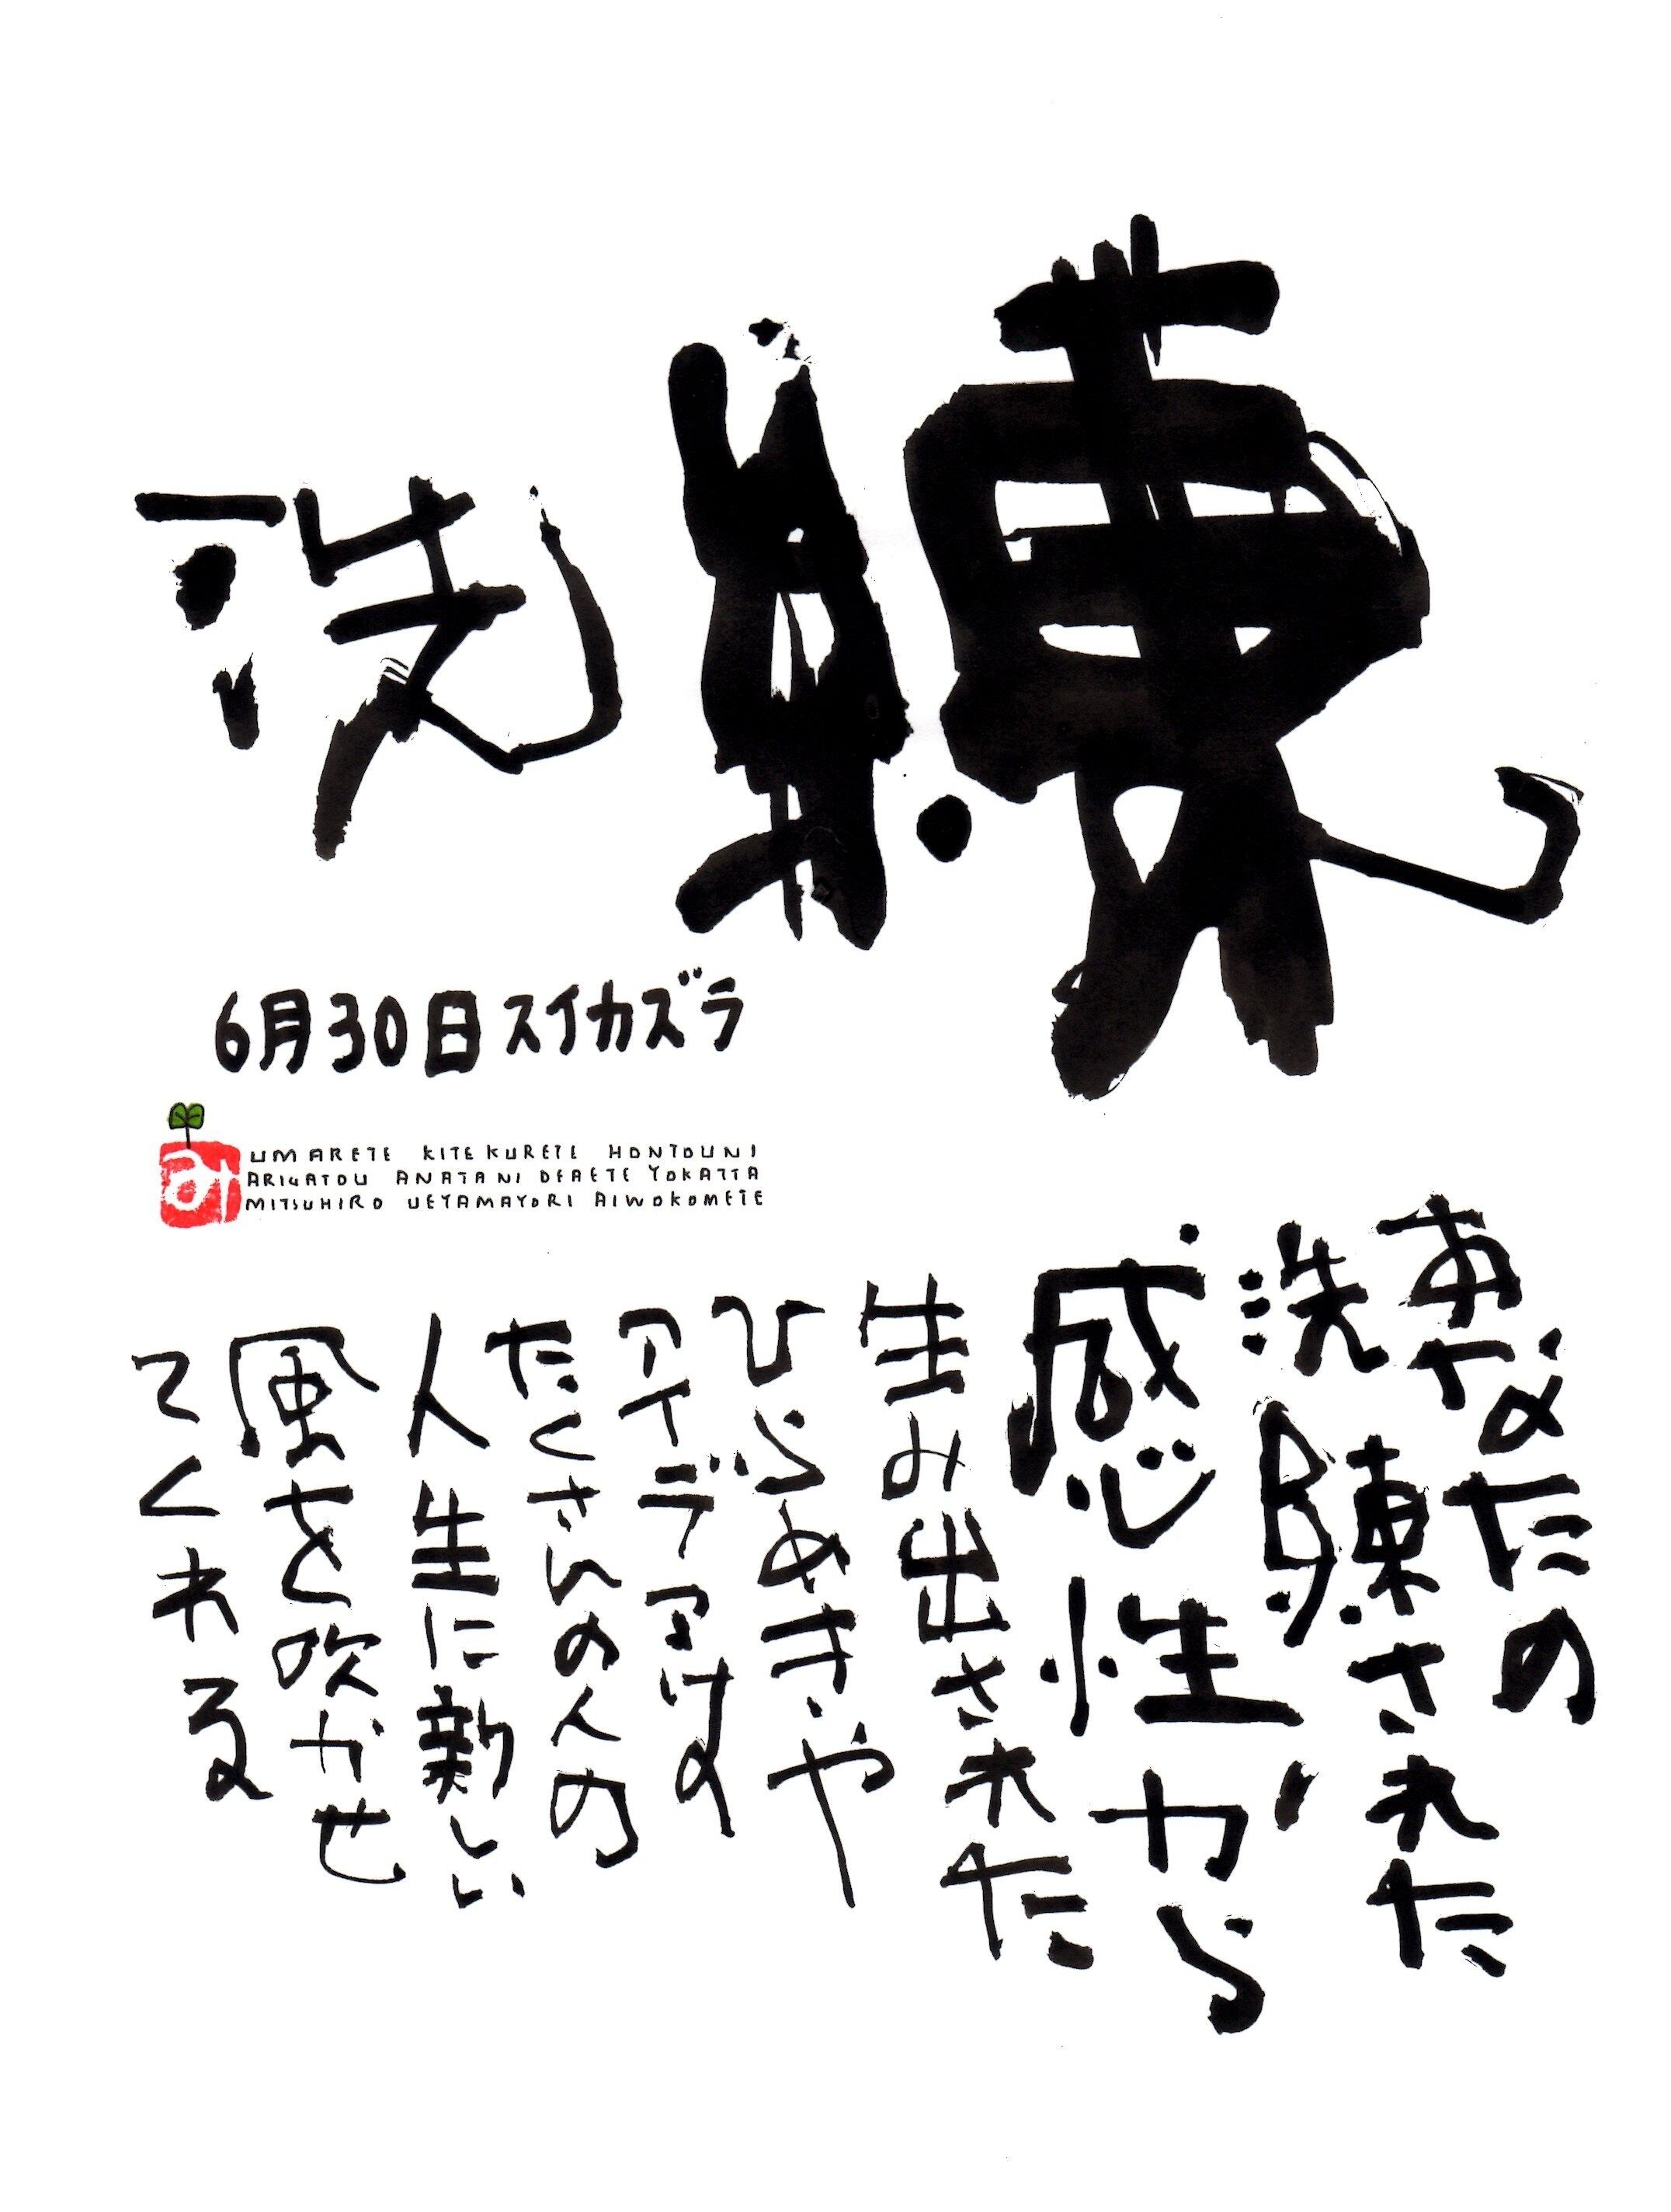 洗練
6月30日スイカズラ
UMARETE KITEKURETE HONTOUNI
ARIGATOU ANATANI DEAETE YOKATTA
MITSUHIRO UEYAMAYORI AIWOKOMETE
あなたの
洗練された
感性から
生み出された
ひらめきや
アイデアは
たくさんの人の
人生に新しい
風を吹かせ
てくれる